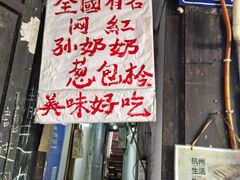 全國有名
网红
孙奶奶
葱包桧
美味好吃
杭州
生活